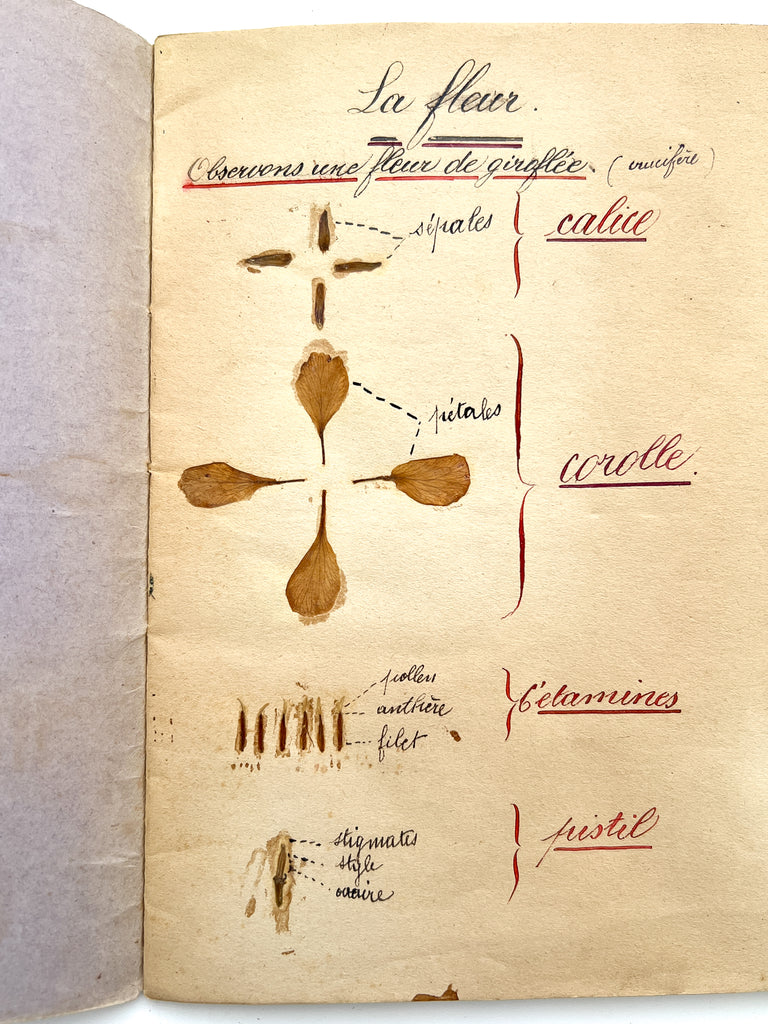 La fleur.
Observons une fleur de giroflée. (crucifère)
sépales
calice
pétales
corolle.
pollen
anthère
filet
6 étamines
pistil
stigmates
style
ovaire